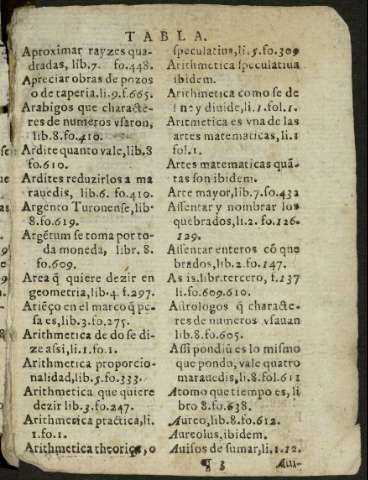 TABLA.
Aproximar rayzes qua-
dradas, lib.7. fo.448.
Apreciar obras de pozos
o de taperia.li.9.f.665.
Arabigos que characte-
res de numeros vsaron,
lib.8.fo.410.
Ardite quanto vale, lib.8
fo.610.
Ardites reduzirlos a ma
rauedis, lib.6. fo.410.
Argento Turonense, lib.
8.fo.619.
Argētum se toma por to-
da moneda, libr. 8.
fo.609.
Area q̄ quiere dezir en
geometria, lib.4. f.297.
en el marco q̄ pe-
sa es, lib.3.fo.275.
Arithmetica de do se di-
ze assi, li.1.fo.1.
Arithmetica proporcio-
nalidad, lib.5.fo.333.
Arithmetica que quiere
dezir lib.3.fo.247.
Arithmetica practica, li.
1.fo.1.
Arithmetica theorica, o
speculatiua, li.5.fo.309
Arithmetica speculatiua
ibidem.
Arithmetica como se de
fine y diuide, li.1.fol.1.
Aritmetica es vna de las
artes matematicas, li.1
fol.1.
Artes matematicas quā-
tas son ibidem.
Arte mayor, lib.7.fo.432
Assentar y nombrar los
quebrados, li.2. fo.126.
129.
Assentar enteros cō que
brados, lib.2.fo.147.
As is.libr.tercero, f.137
li.fo.609.610.
Astrologos q̄ characte-
res de numeros vsauan
lib.8.fo.605.
Assi pondiū es lo mismo
que pondo, vale quatro
marauedis, li.8.fol.611
Atomo que tiempo es, li
bro 8.fo.638.
Aureo, lib.8.fo.612.
Aureolus, ibidem.
Auisos de sumar, li.1.12.
¶ 3 Aui-